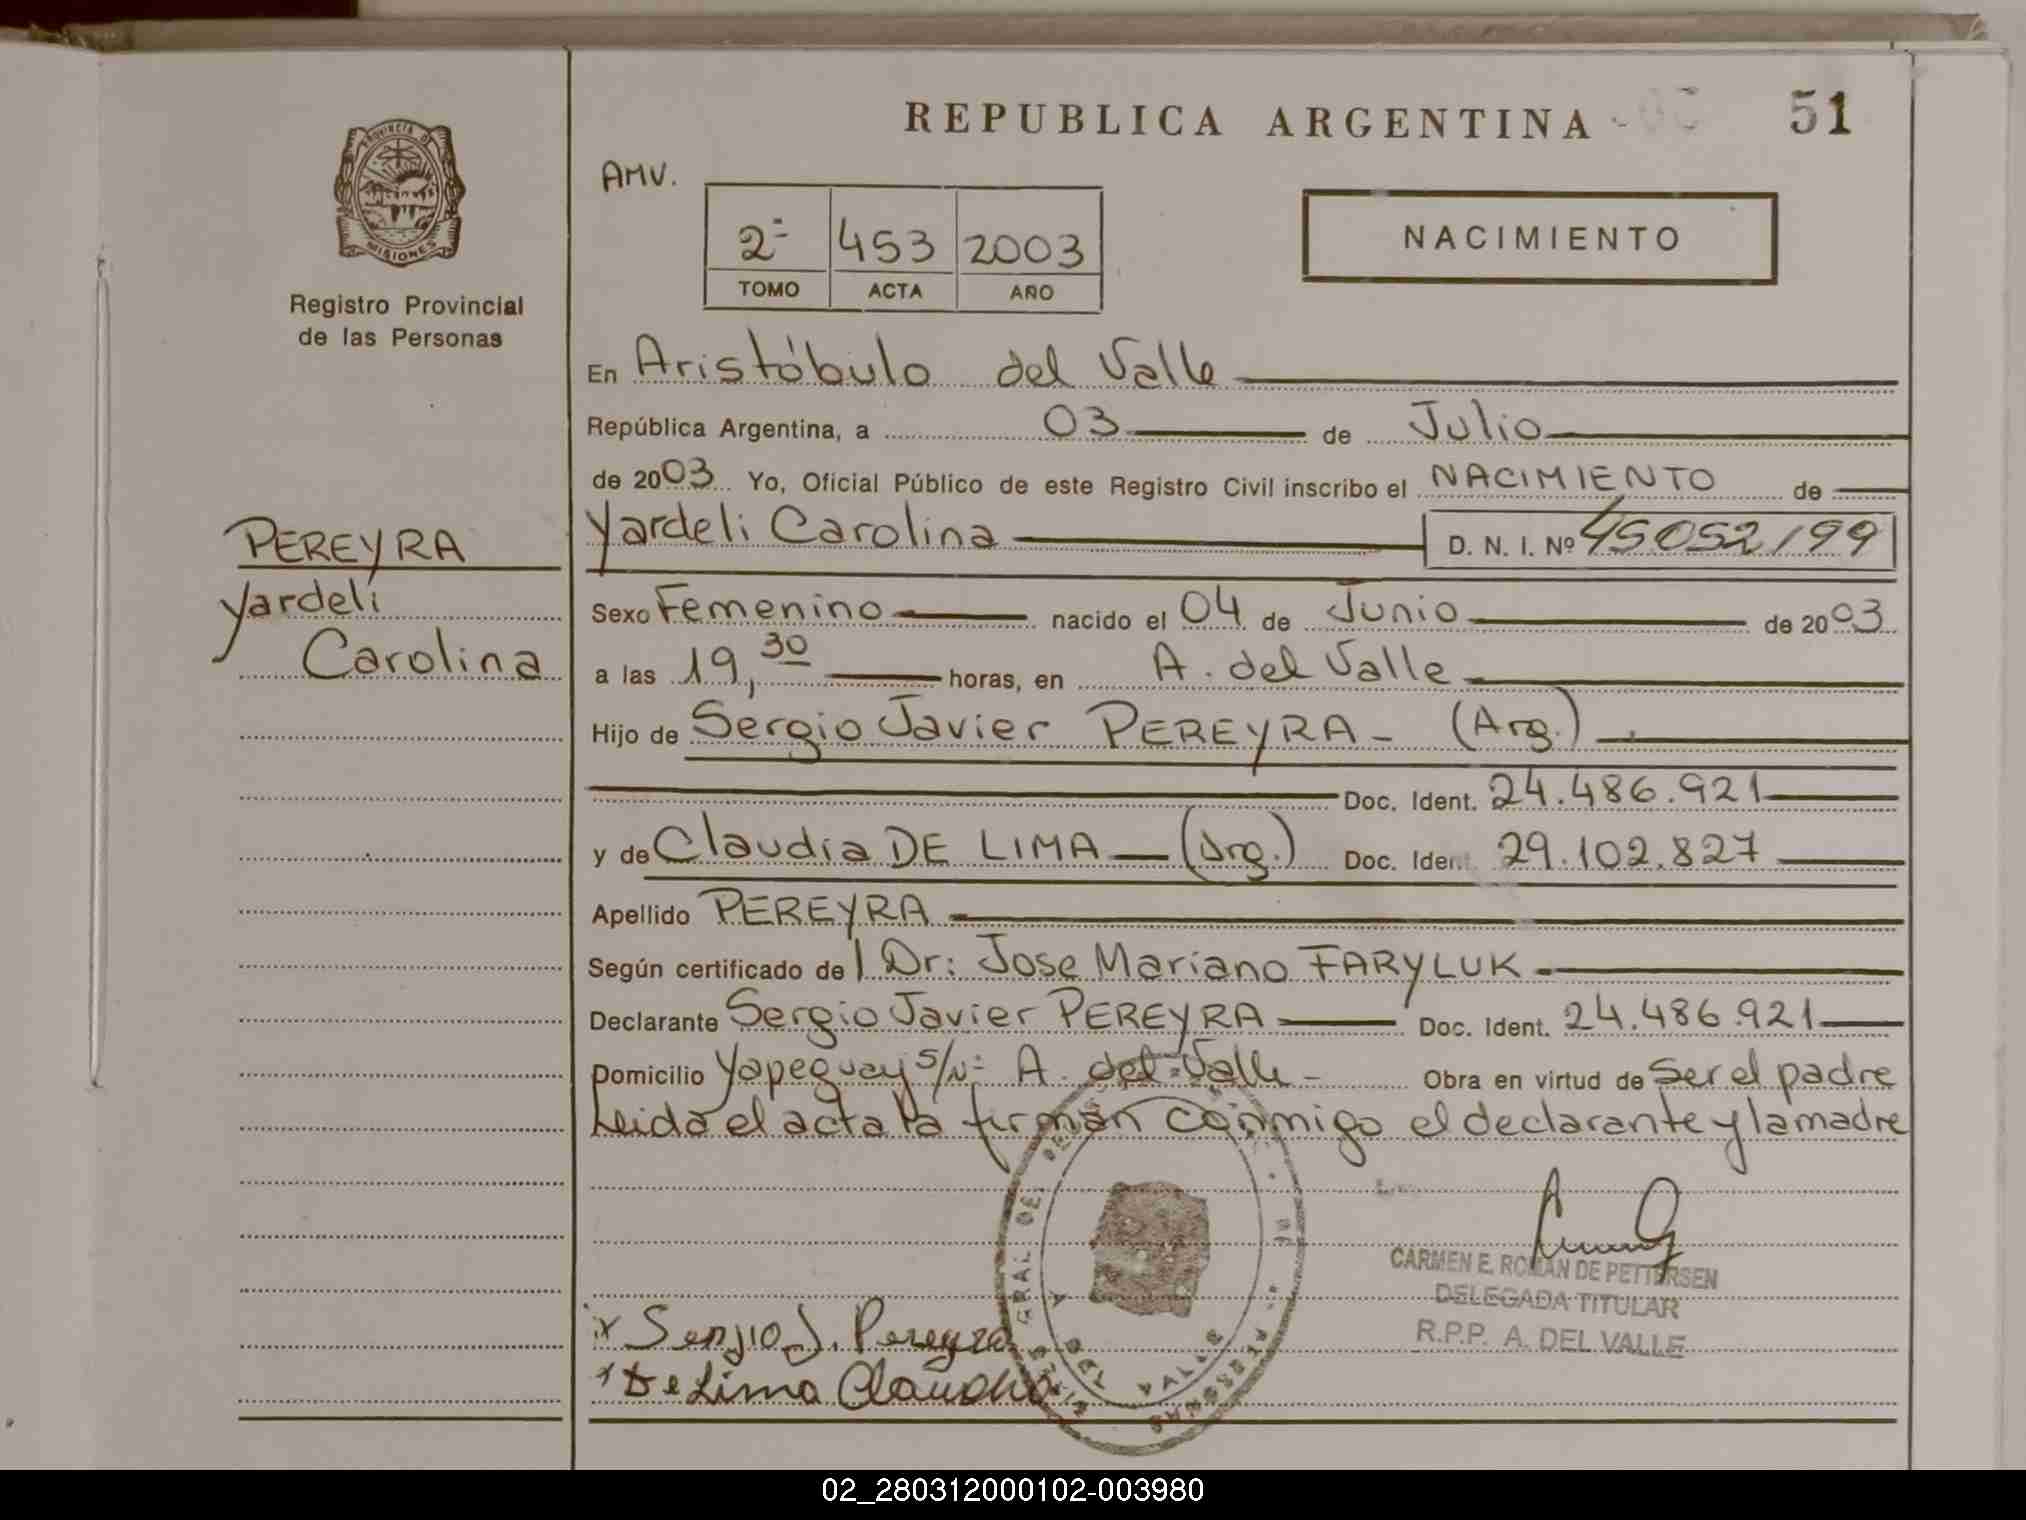 REPUBLICA ARGENTINA
51
PROVINCIA DE
MISIONES
Registro Provincial
de las Personas
AMV.
2º 453 2003
TOMO ACTA AÑO
NACIMIENTO
En Aristóbulo del Valle
República Argentina, a 03 de Julio
de 2003 Yo, Oficial Público de este Registro Civil inscribo el NACIMIENTO de
Yardeli Carolina D. N. I. Nº 45052199
PEREYRA
Yardeli
Carolina
Sexo Femenino nacido el 04 de Junio de 2003
a las 19,30 horas, en A. del Valle
Hijo de Sergio Javier PEREYRA - (Arg.)
Doc. Ident. 24.486.921
y de Claudia DE LIMA — (Arg.) Doc. Ident. 29.102.827
Apellido PEREYRA
Según certificado del Dr: Jose Mariano FARYLUK
Declarante Sergio Javier PEREYRA Doc. Ident. 24.486.921
Domicilio Yapeguay s/nº A. del Valle - Obra en virtud de Ser el padre
Leida el acta la firman conmigo el declarante y la madre
CARMEN E. ROMAN DE PETTERSEN
DELEGADA TITULAR
R.P.P. A. DEL VALLE
x Sergio J. Pereyra
x De Lima Claudia
A. DEL VALLE
02_280312000102-003980